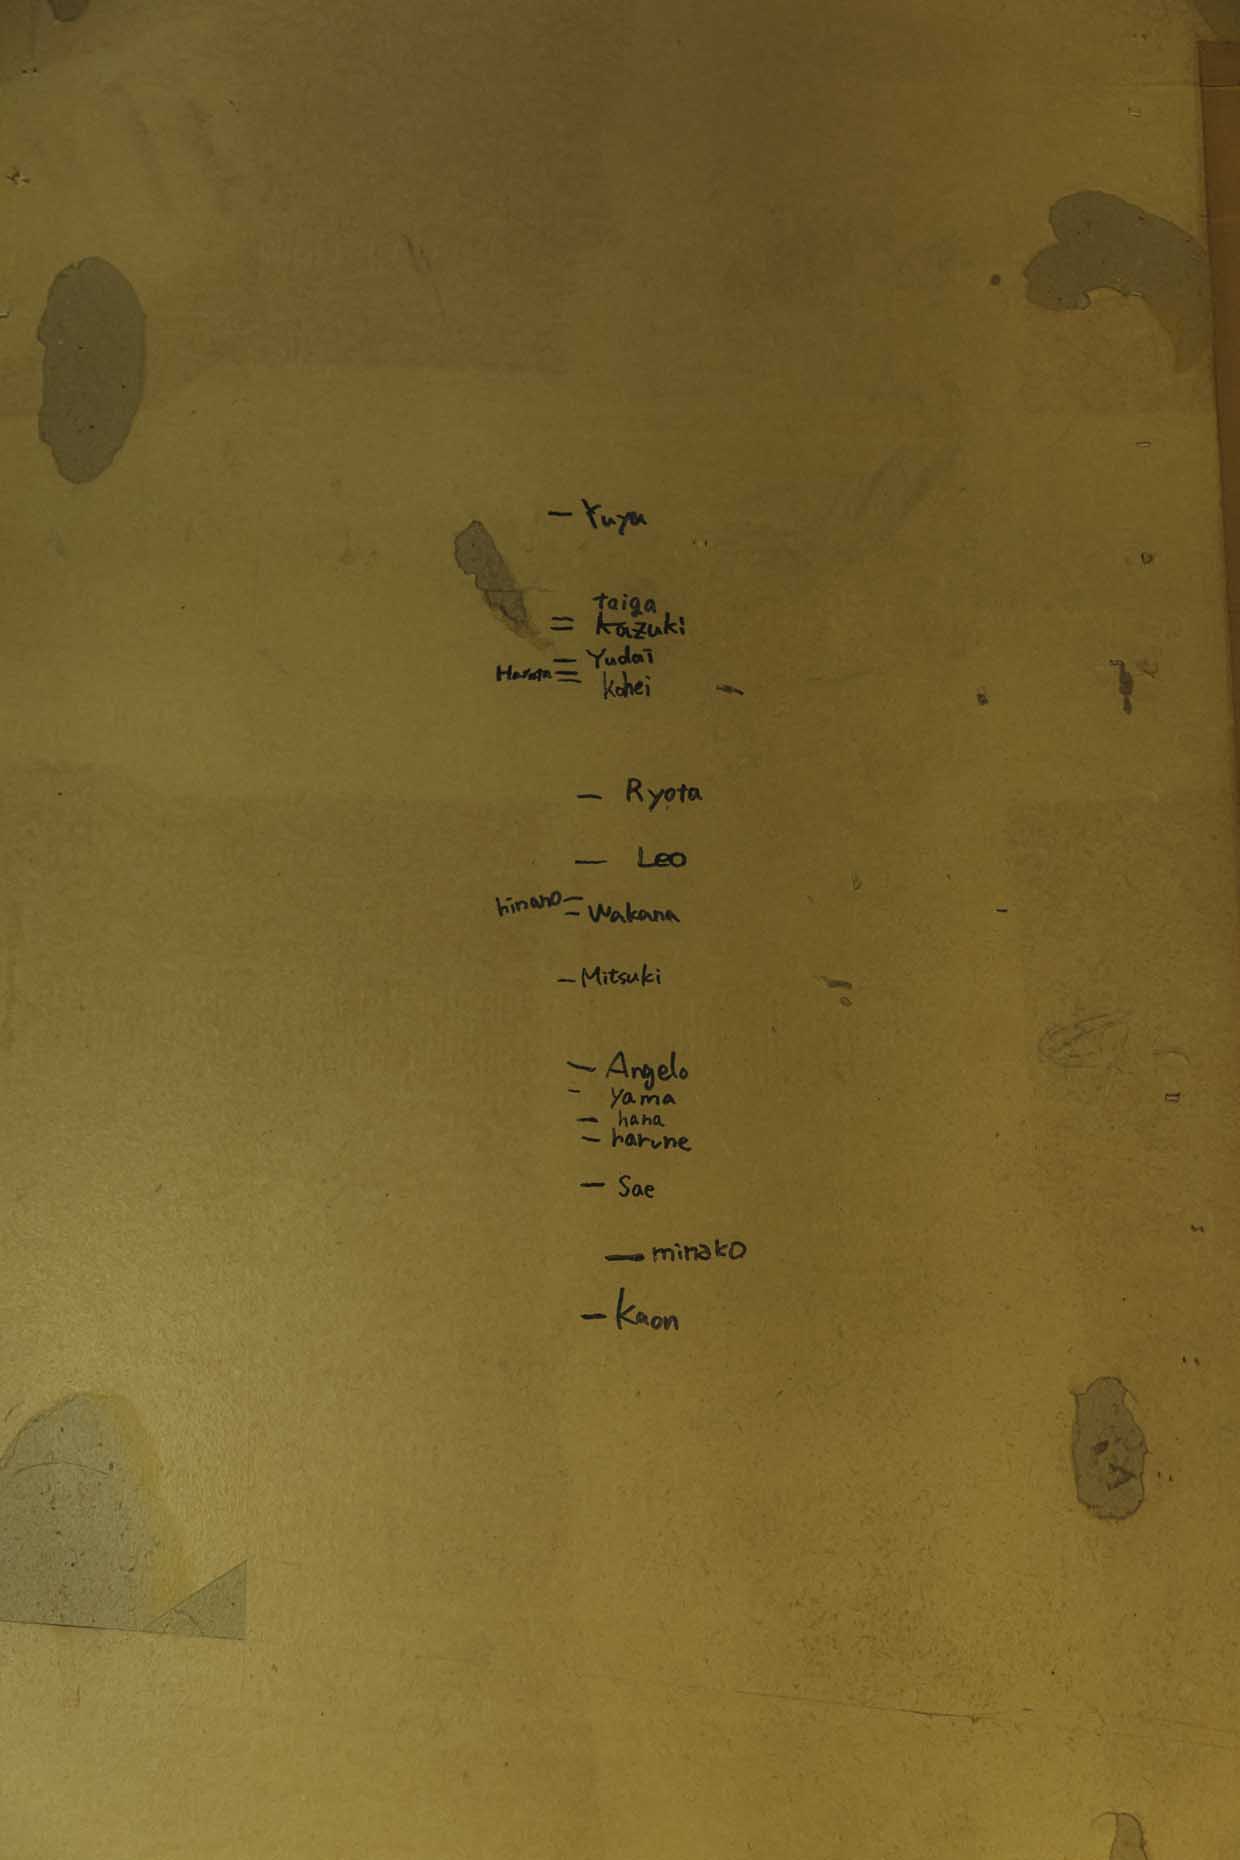 Yuyu
taiga
Kazuki
Yudai
Kohei
Ryota
Leo
hinano
Wakana
Mitsuki
Angelo
yama
hana
harune
Sae
minako
Kaon